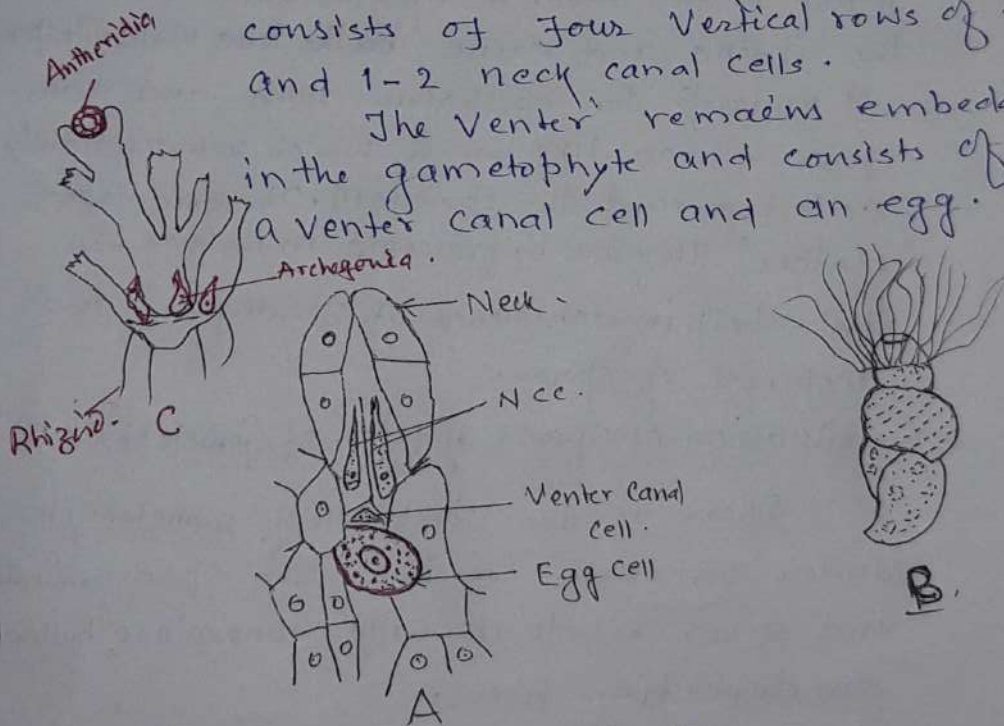 consists of four Vertical rows of
and 1-2 neck canal cells.
The Venter remains embed
in the gametophyte and consists of
a venter canal cell and an egg.
Antheridia
Archegonia.
Rhizoid.
C
Neck
NCC.
Venter Canal
Cell.
Egg cell
A
B.